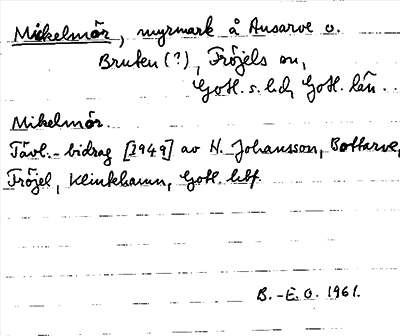 Mickelmör, myrmark å Ansarve o.
Bruten (?), Fröjels sn,
Gotl. s. hd, Gotl. län.
Mikelmör.
Tävl.-bidrag [1949] av N. Johansson, Bottarve,
Fröjel, Klintehamn, Gotl. hbf
B.-E.O. 1961.